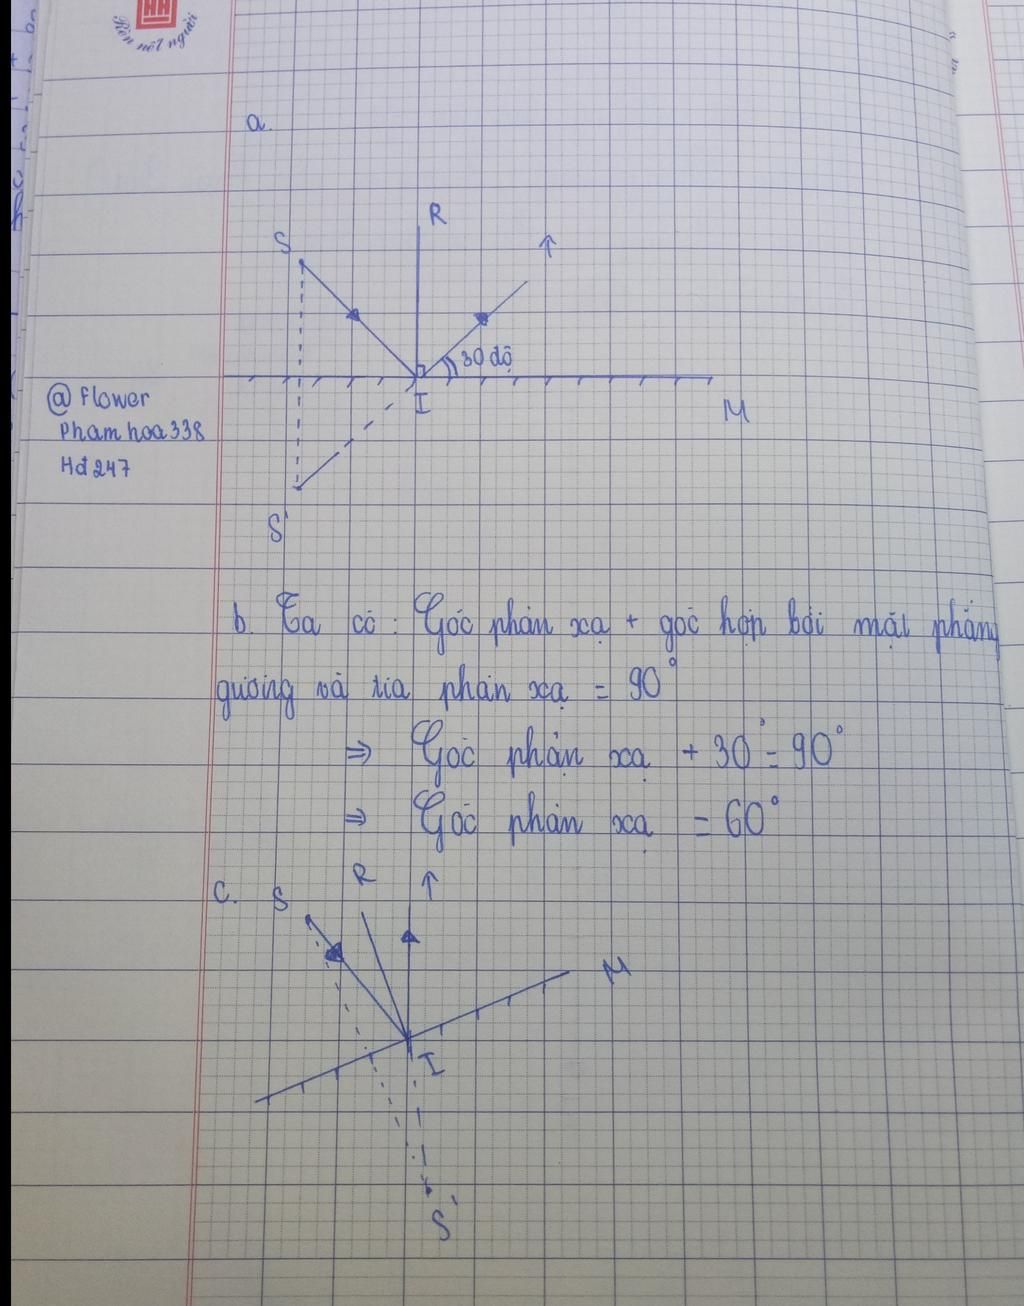 HH
Rèn nết người
a.
R
S
30 độ
I
M
@ Flower
Phamhoa338
Hđ247
S'
b. Ta có : Góc phản xạ + góc hợp bởi mặt phẳng
gương và tia phản xạ = 90°
⇒ Góc phản xạ + 30° = 90°
⇒ Góc phản xạ = 60°
c.
S
R
M
I
S'